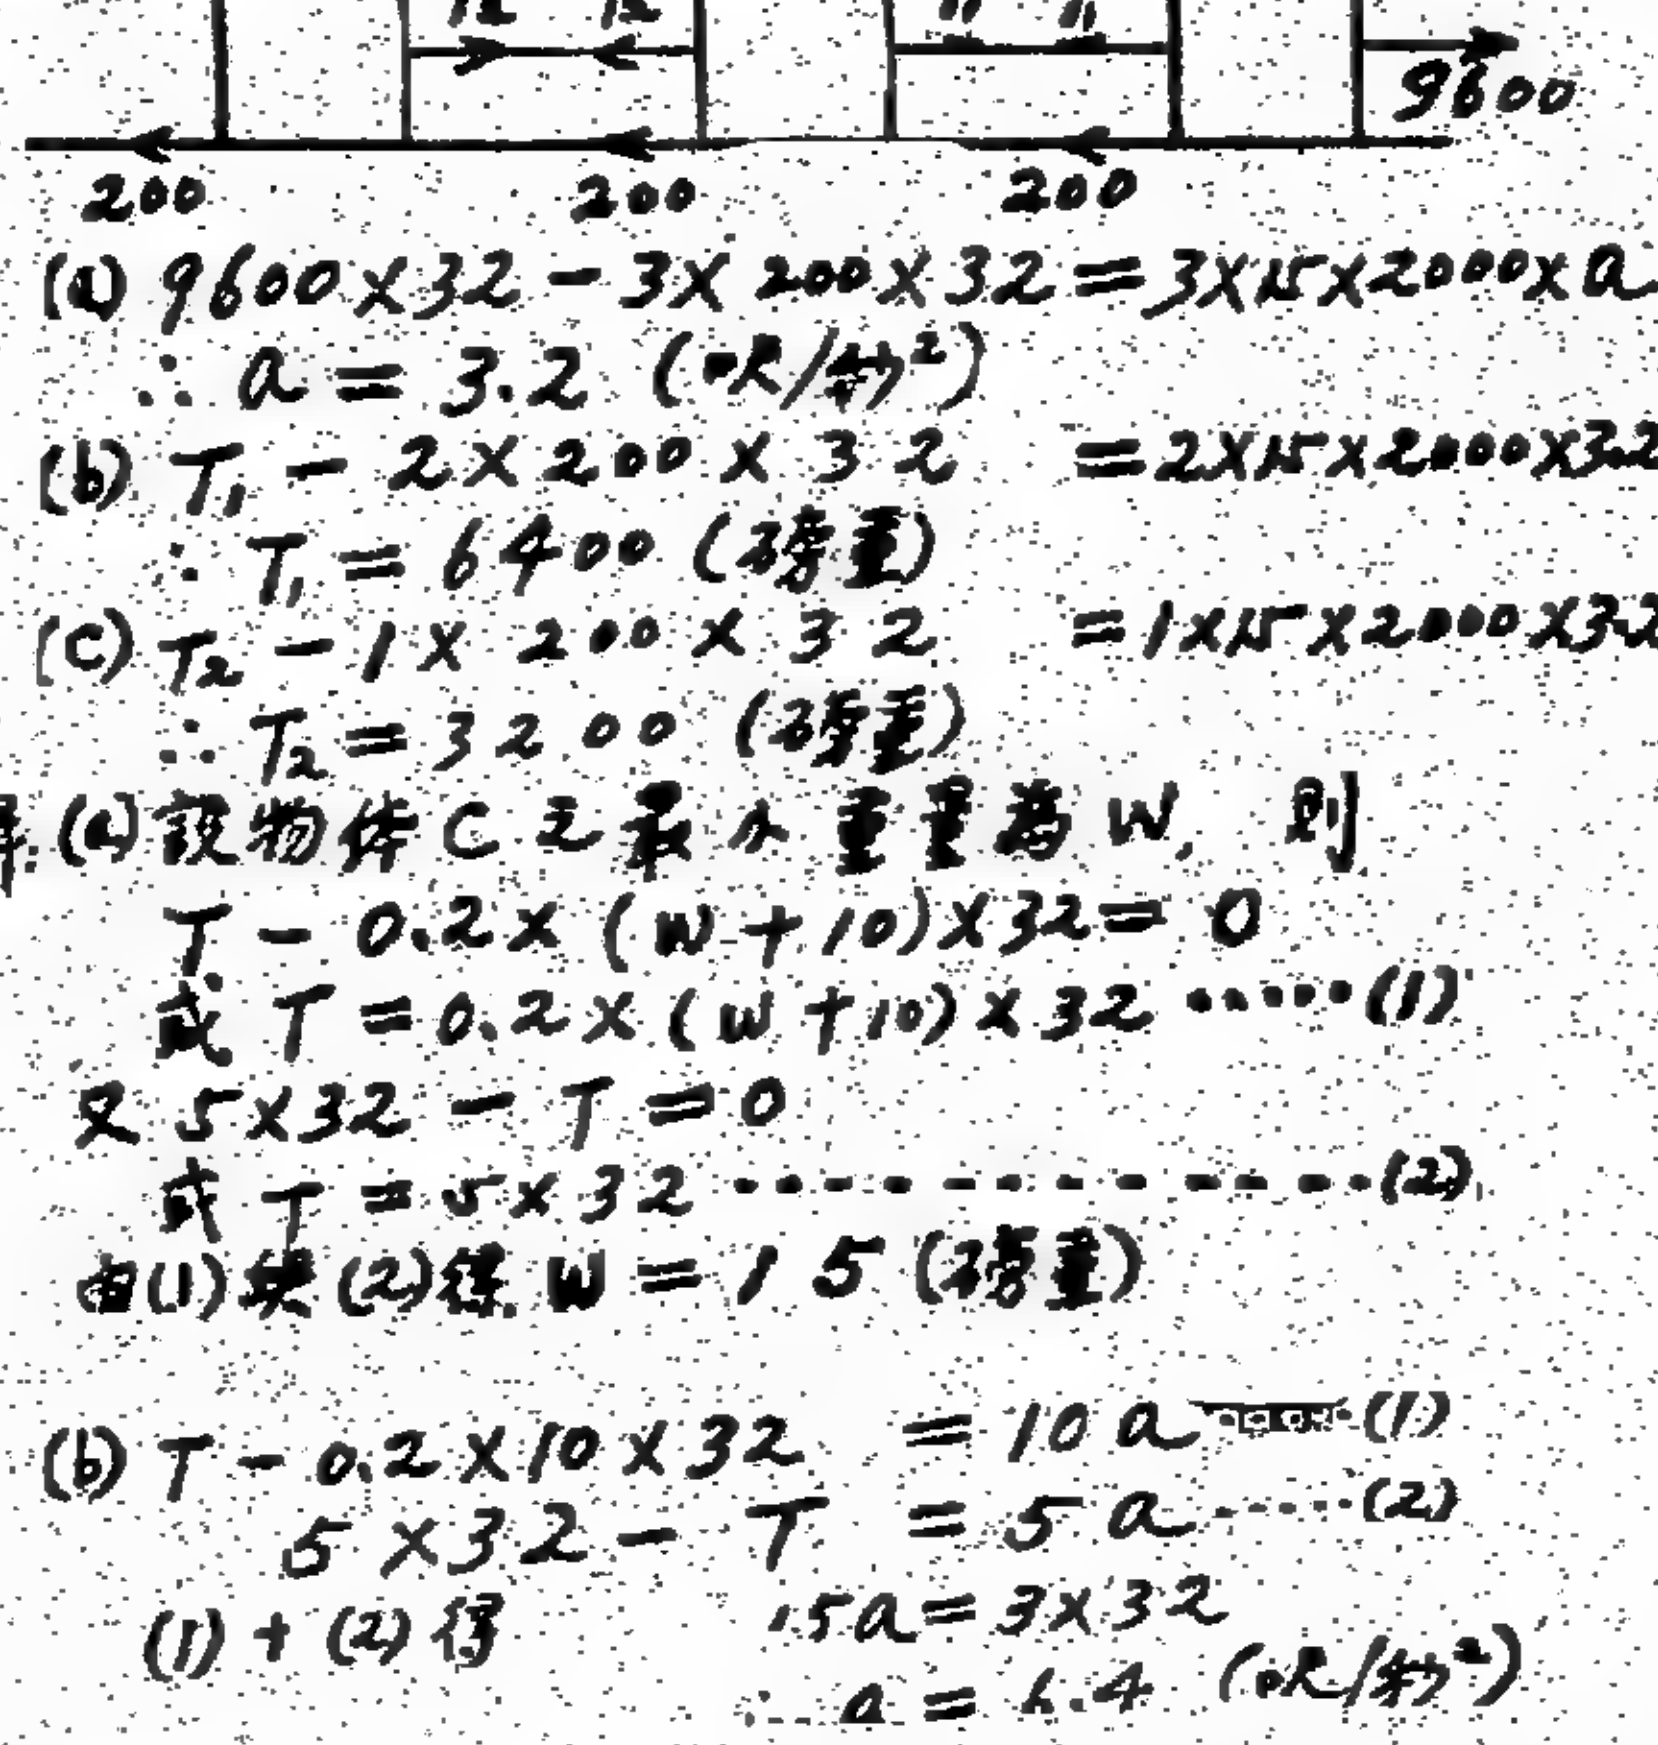 T2 T2 T1 T1
9600
200 200 200
(a) 9600×32-3×200×32=3×15×2000×a
∴ a=3.2 (呎/秒²)
(b) T₁-2×200×32 =2×15×2000×3.2
∴ T₁=6400(磅重)
(c) T₂-1×200×32 =1×15×2000×3.2
∴ T₂=3200(磅重)
(a)設物体C之最小重量為W, 則
T-0.2×(W+10)×32=0
或 T=0.2×(W+10)×32‧‧‧‧‧‧(1)
又 5×32-T=0
或 T=5×32------------(2)
由(1)與(2)得 W=15(磅重)
(b) T-0.2×10×32 =10a‧‧‧‧‧(1)
5×32-T =5a‧‧‧‧‧(2)
(1)+(2)得 15a=3×32
∴ a=6.4 (呎/秒²)